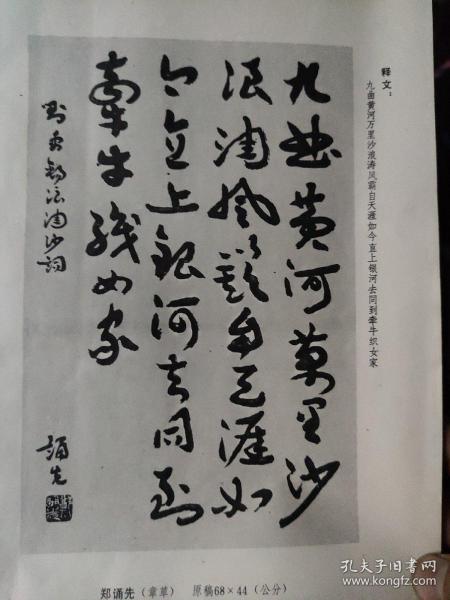 释文：
九曲黄河万里沙浪涛风霸自天涯如今直上银河去同到牵牛织女家
九曲黄河萬里沙
浪淘風簸自天涯如
今直上銀河去同到
牽牛織女家
劉禹錫浪淘沙詞
誦先
郑诵先（章草） 原稿68×44（公分）
孔夫子旧书网